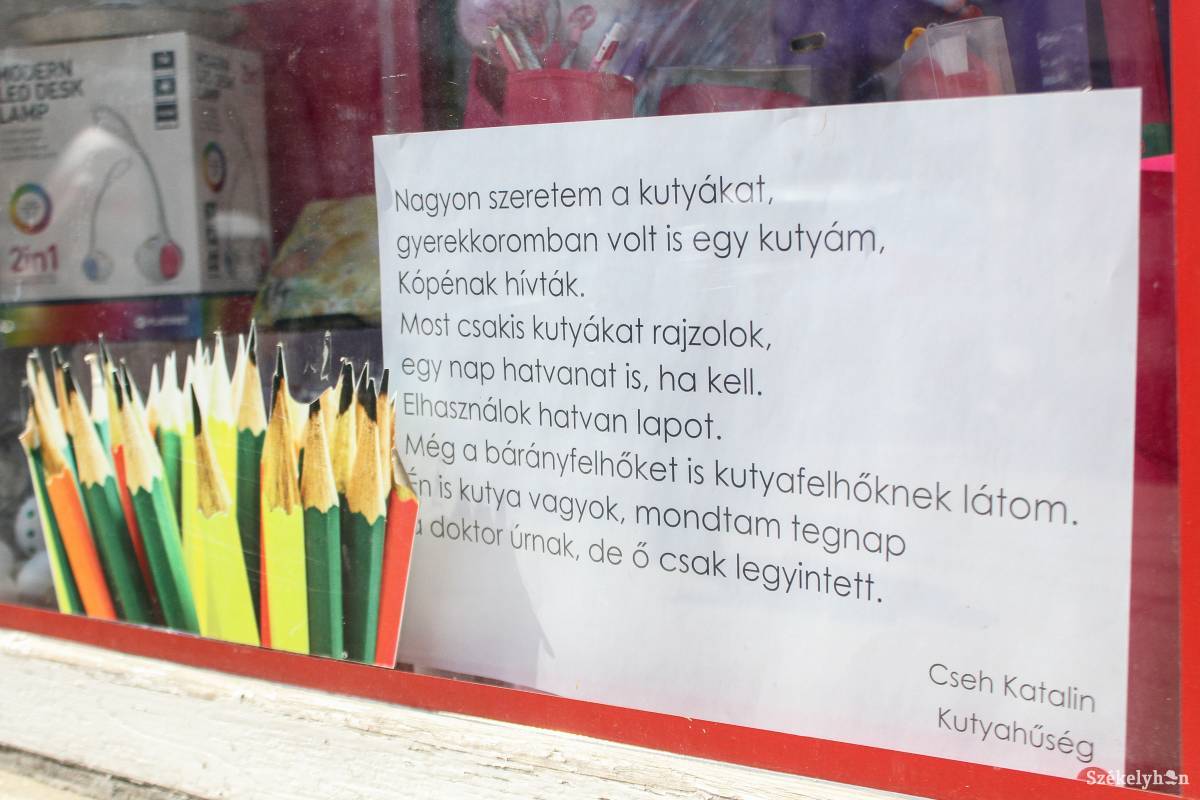 MODERN
LED DESK
LAMP
2in1
Nagyon szeretem a kutyákat,
gyerekkoromban volt is egy kutyám,
Kópénak hívták.
Most csakis kutyákat rajzolok,
egy nap hatvanat is, ha kell.
Elhasználok hatvan lapot.
Még a bárányfelhőket is kutyafelhőknek látom.
Én is kutya vagyok, mondtam tegnap
a doktor úrnak, de ő csak legyintett.
Cseh Katalin
Kutyahűség
Székelyhon